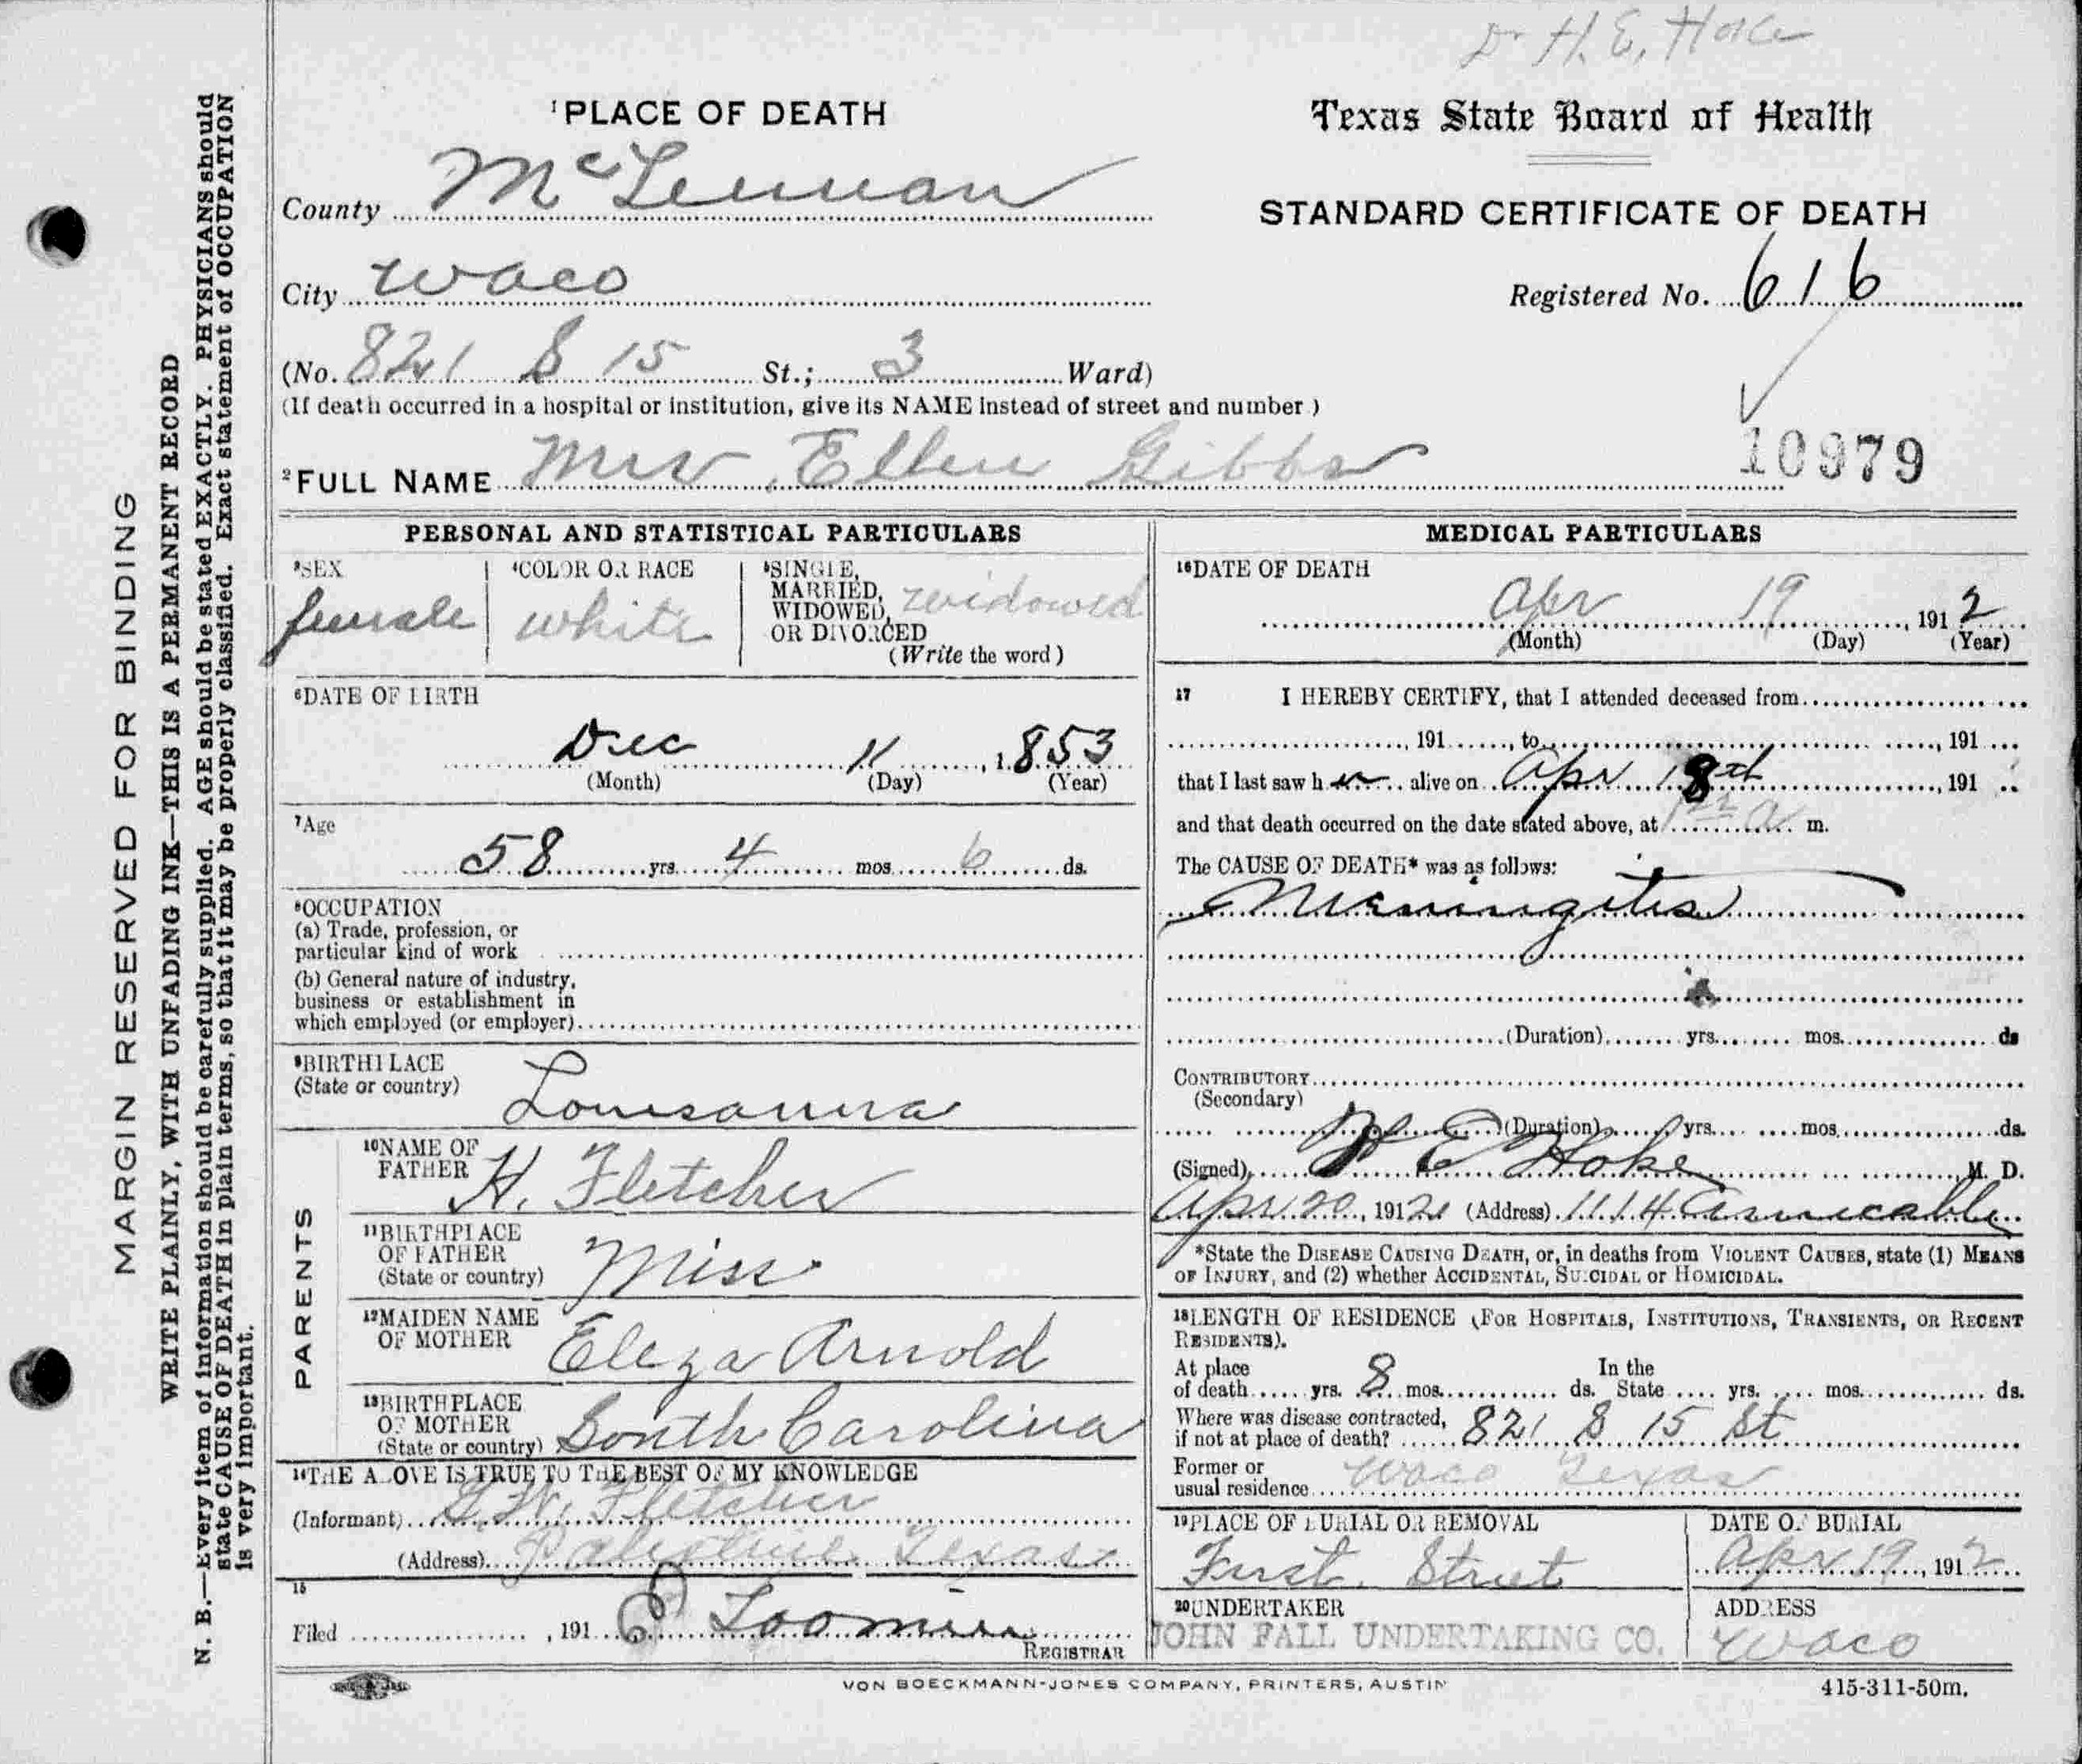 Dr H. E. Hoke
¹PLACE OF DEATH
Texas State Board of Health
County McLennan
STANDARD CERTIFICATE OF DEATH
City Waco
Registered No. 616
(No. 821 S 15 St.; 3 Ward)
(If death occurred in a hospital or institution, give its NAME instead of street and number)
10979
²FULL NAME Mrs. Ellen Gibbs
PERSONAL AND STATISTICAL PARTICULARS
³SEX
female
⁴COLOR OR RACE
white
⁵SINGLE,
MARRIED,
WIDOWED,
OR DIVORCED
(Write the word)
widowed
⁶DATE OF BIRTH
Dec 11, 1853
(Month) (Day) (Year)
⁷Age
58 yrs. 4 mos. 6 ds.
⁸OCCUPATION
(a) Trade, profession, or
particular kind of work
(b) General nature of industry,
business or establishment in
which employed (or employer)
⁹BIRTHPLACE
(State or country)
Louisanna
PARENTS
¹⁰NAME OF
FATHER H. Fletcher
¹¹BIRTHPLACE
OF FATHER
(State or country) Miss
¹²MAIDEN NAME
OF MOTHER Eleza Arnold
¹³BIRTHPLACE
OF MOTHER
(State or country) South Carolina
¹⁴THE ABOVE IS TRUE TO THE BEST OF MY KNOWLEDGE
(Informant) Fletcher
(Address) Palestine Texas
¹⁵
Filed , 191 Loomis
REGISTRAR
MEDICAL PARTICULARS
¹⁶DATE OF DEATH
Apr 19, 1912
(Month) (Day) (Year)
¹⁷ I HEREBY CERTIFY, that I attended deceased from
, 191 , to , 191
that I last saw her alive on Apr 18th, 191
and that death occurred on the date stated above, at a m.
The CAUSE OF DEATH* was as follows:
Meningitis
(Duration) yrs. mos. ds
CONTRIBUTORY
(Secondary)
(Duration) yrs. mos. ds.
(Signed) H E Hoke M. D.
Apr 20, 1912 (Address) 1114 Amicable
*State the DISEASE CAUSING DEATH, or, in deaths from VIOLENT CAUSES, state (1) MEANS
OF INJURY, and (2) whether ACCIDENTAL, SUICIDAL or HOMICIDAL.
¹⁸LENGTH OF RESIDENCE (FOR HOSPITALS, INSTITUTIONS, TRANSIENTS, OR RECENT
RESIDENTS).
At place In the
of death yrs. 8 mos. ds. State yrs. mos. ds.
Where was disease contracted,
if not at place of death? 821 S 15 St
Former or
usual residence Waco Texas
¹⁹PLACE OF BURIAL OR REMOVAL
First Street
DATE OF BURIAL
Apr 19, 1912
²⁰UNDERTAKER
JOHN FALL UNDERTAKING CO.
ADDRESS
Waco
VON BOECKMANN-JONES COMPANY, PRINTERS, AUSTIN
415-311-50m.
MARGIN RESERVED FOR BINDING
WRITE PLAINLY, WITH UNFADING INK—THIS IS A PERMANENT RECORD
N. B.—Every item of information should be carefully supplied. AGE should be stated EXACTLY. PHYSICIANS should
state CAUSE OF DEATH in plain terms, so that it may be properly classified. Exact statement of OCCUPATION
is very important.